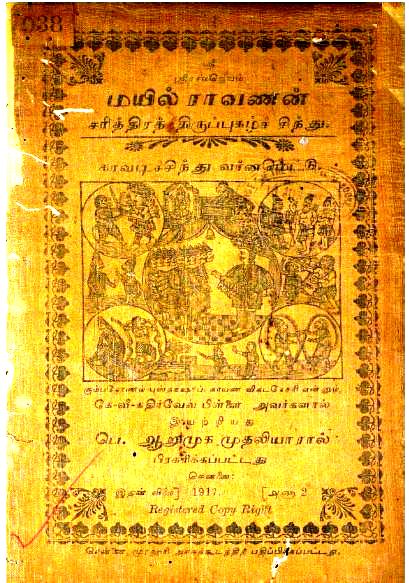 038
ஸ்ரீ
மயில் ராவணன்
சரித்திரத் திருப்புகழ்ச் சிந்து.
காவடிச்சிந்து வர்னமெட்டு.
கும்பகோணம்
என்னும்,
கே-வி-கதிர்வேல் பிள்ளை அவர்களால்
இயற்றியது
பெ. ஆறுமுக முதலியாரால்
பிரசுரிக்கப்பட்டது
சென்னை:
இதன் விலை] 1917. [அணா 2
Registered Copy Right
சென்னை, பதிப்பிக்கப்பட்டது.